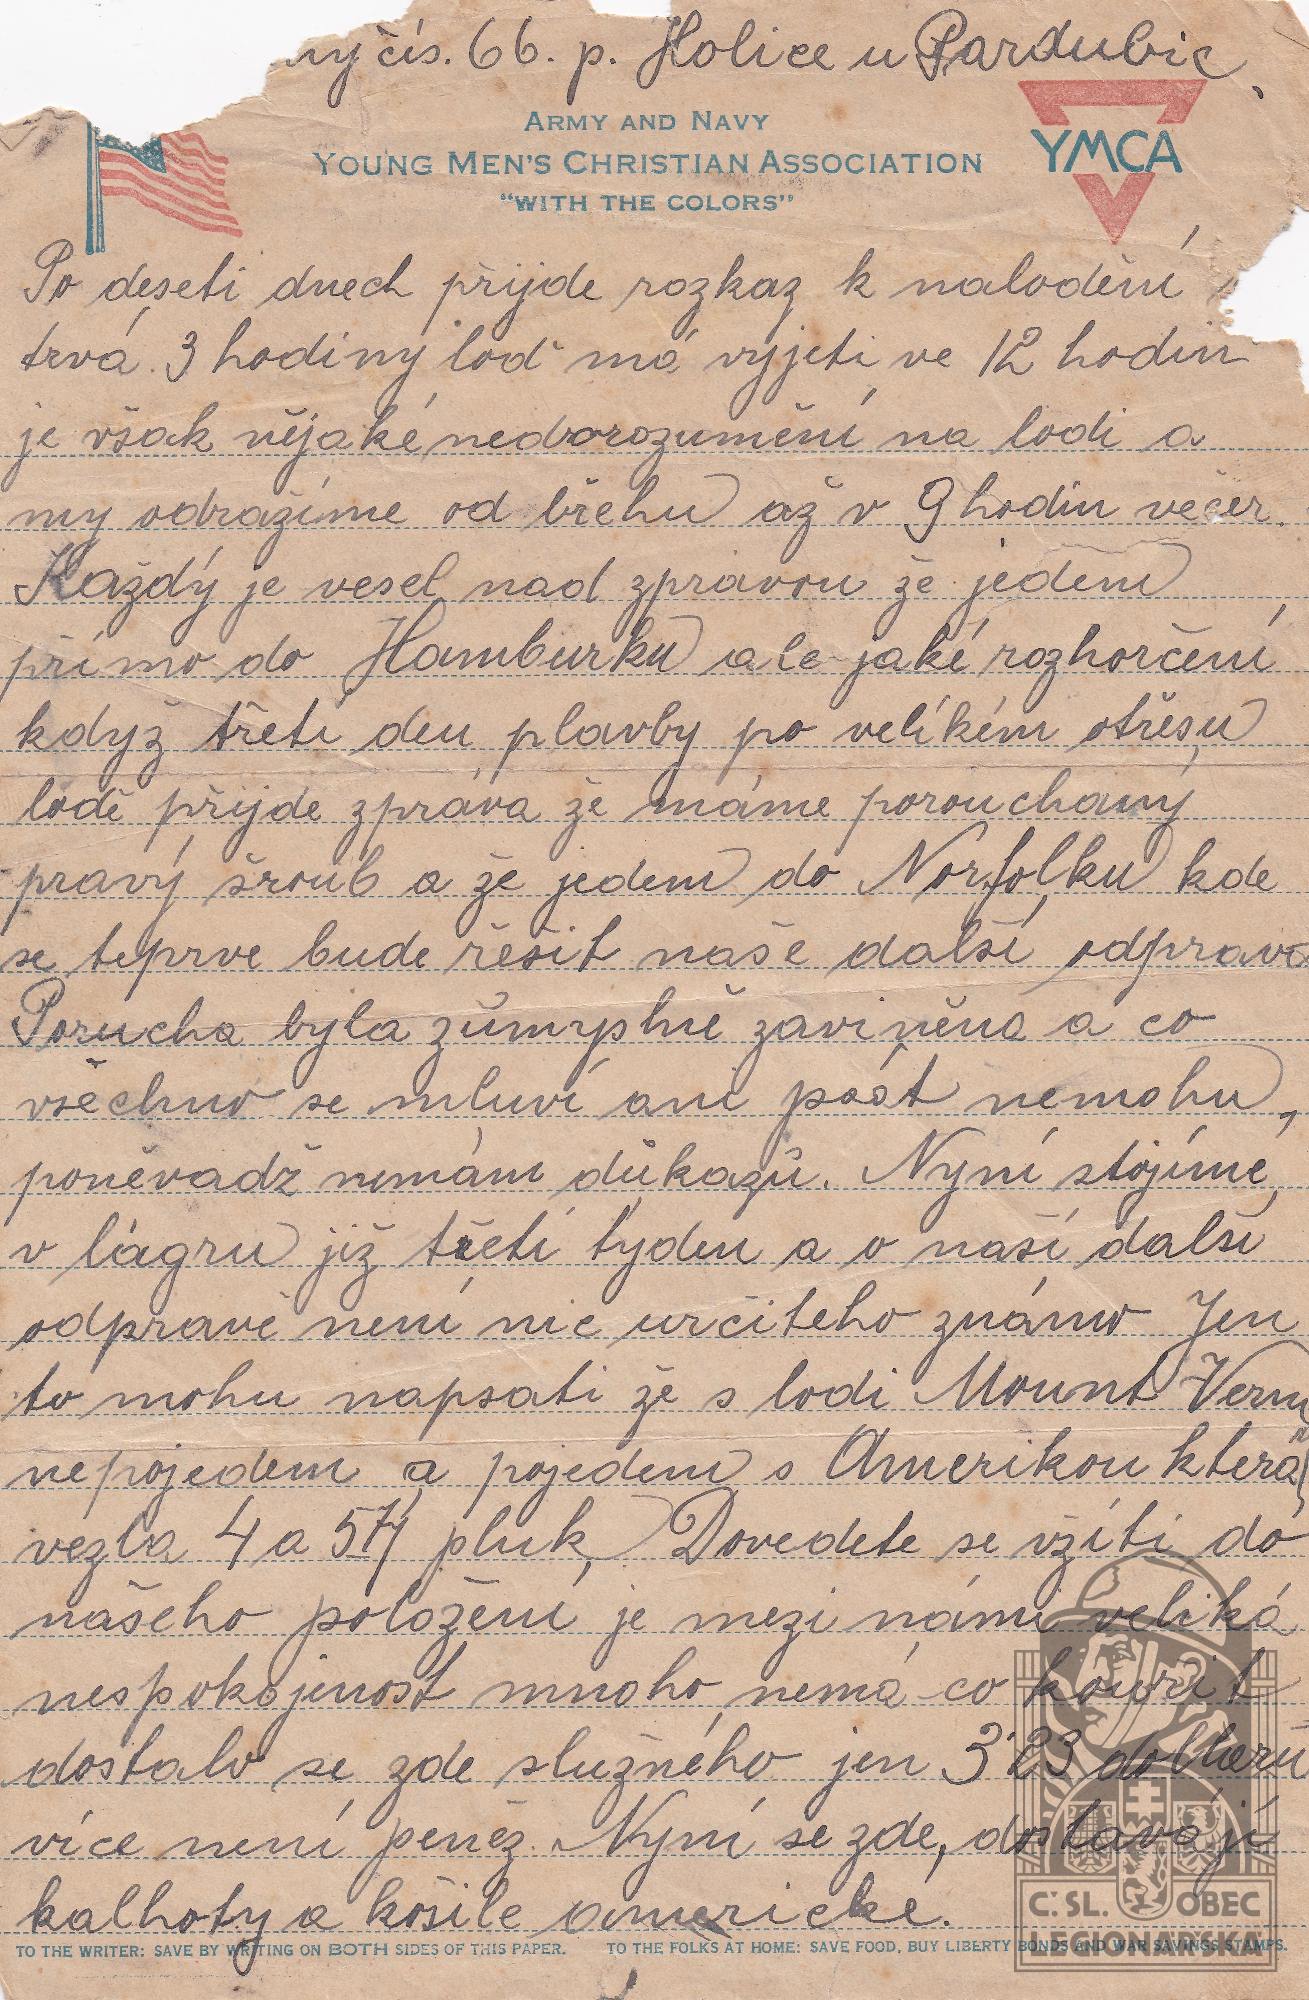 ný čís. 66. p. Holice u Pardubic
ARMY AND NAVY
YOUNG MEN'S CHRISTIAN ASSOCIATION
"WITH THE COLORS"
YMCA
Po deseti dnech přijde rozkaz k nalodění
trvá 3 hodiny loď má vyjeti ve 12 hodin
je však nějaké nedorozumění na lodi a
my odrazíme od břehu až v 9 hodin večer.
Každý je vesel nad zprávou že jedem
přímo do Hamburku ale jaké rozhorčení
když třetí den plavby po velikém otřesu
lodě přijde zpráva že máme porouchaný
pravý šroub a že jedem do Norfolku kde
se teprve bude řešit naše další odprava
Porucha byla zůmyslně zaviněna a co
všechno se mluví ani psát nemohu,
poněvadž nemám důkazů. Nyní stojíme
v lágru již třetí týden a o naší další
odpravě není nic určitého známo Jen
to mohu napsati že s lodi Mount Vern
nepojedem a pojedem s Amerikou která
vezla 4 a 5tý pluk, Dovedete se vžíti do
našeho položení je mezi námi veliká
nespokojenost mnoho nemá co kouřit
dostalo se zde služného jen 3'23 dollarů
více není peněz. Nyní se zde, dostávají
kalhoty a košile americké.
TO THE WRITER: SAVE BY WRITING ON BOTH SIDES OF THIS PAPER. TO THE FOLKS AT HOME: SAVE FOOD, BUY LIBERTY BONDS AND WAR SAVINGS STAMPS.
Č.SL. OBEC
LEGIONÁŘSKÁ